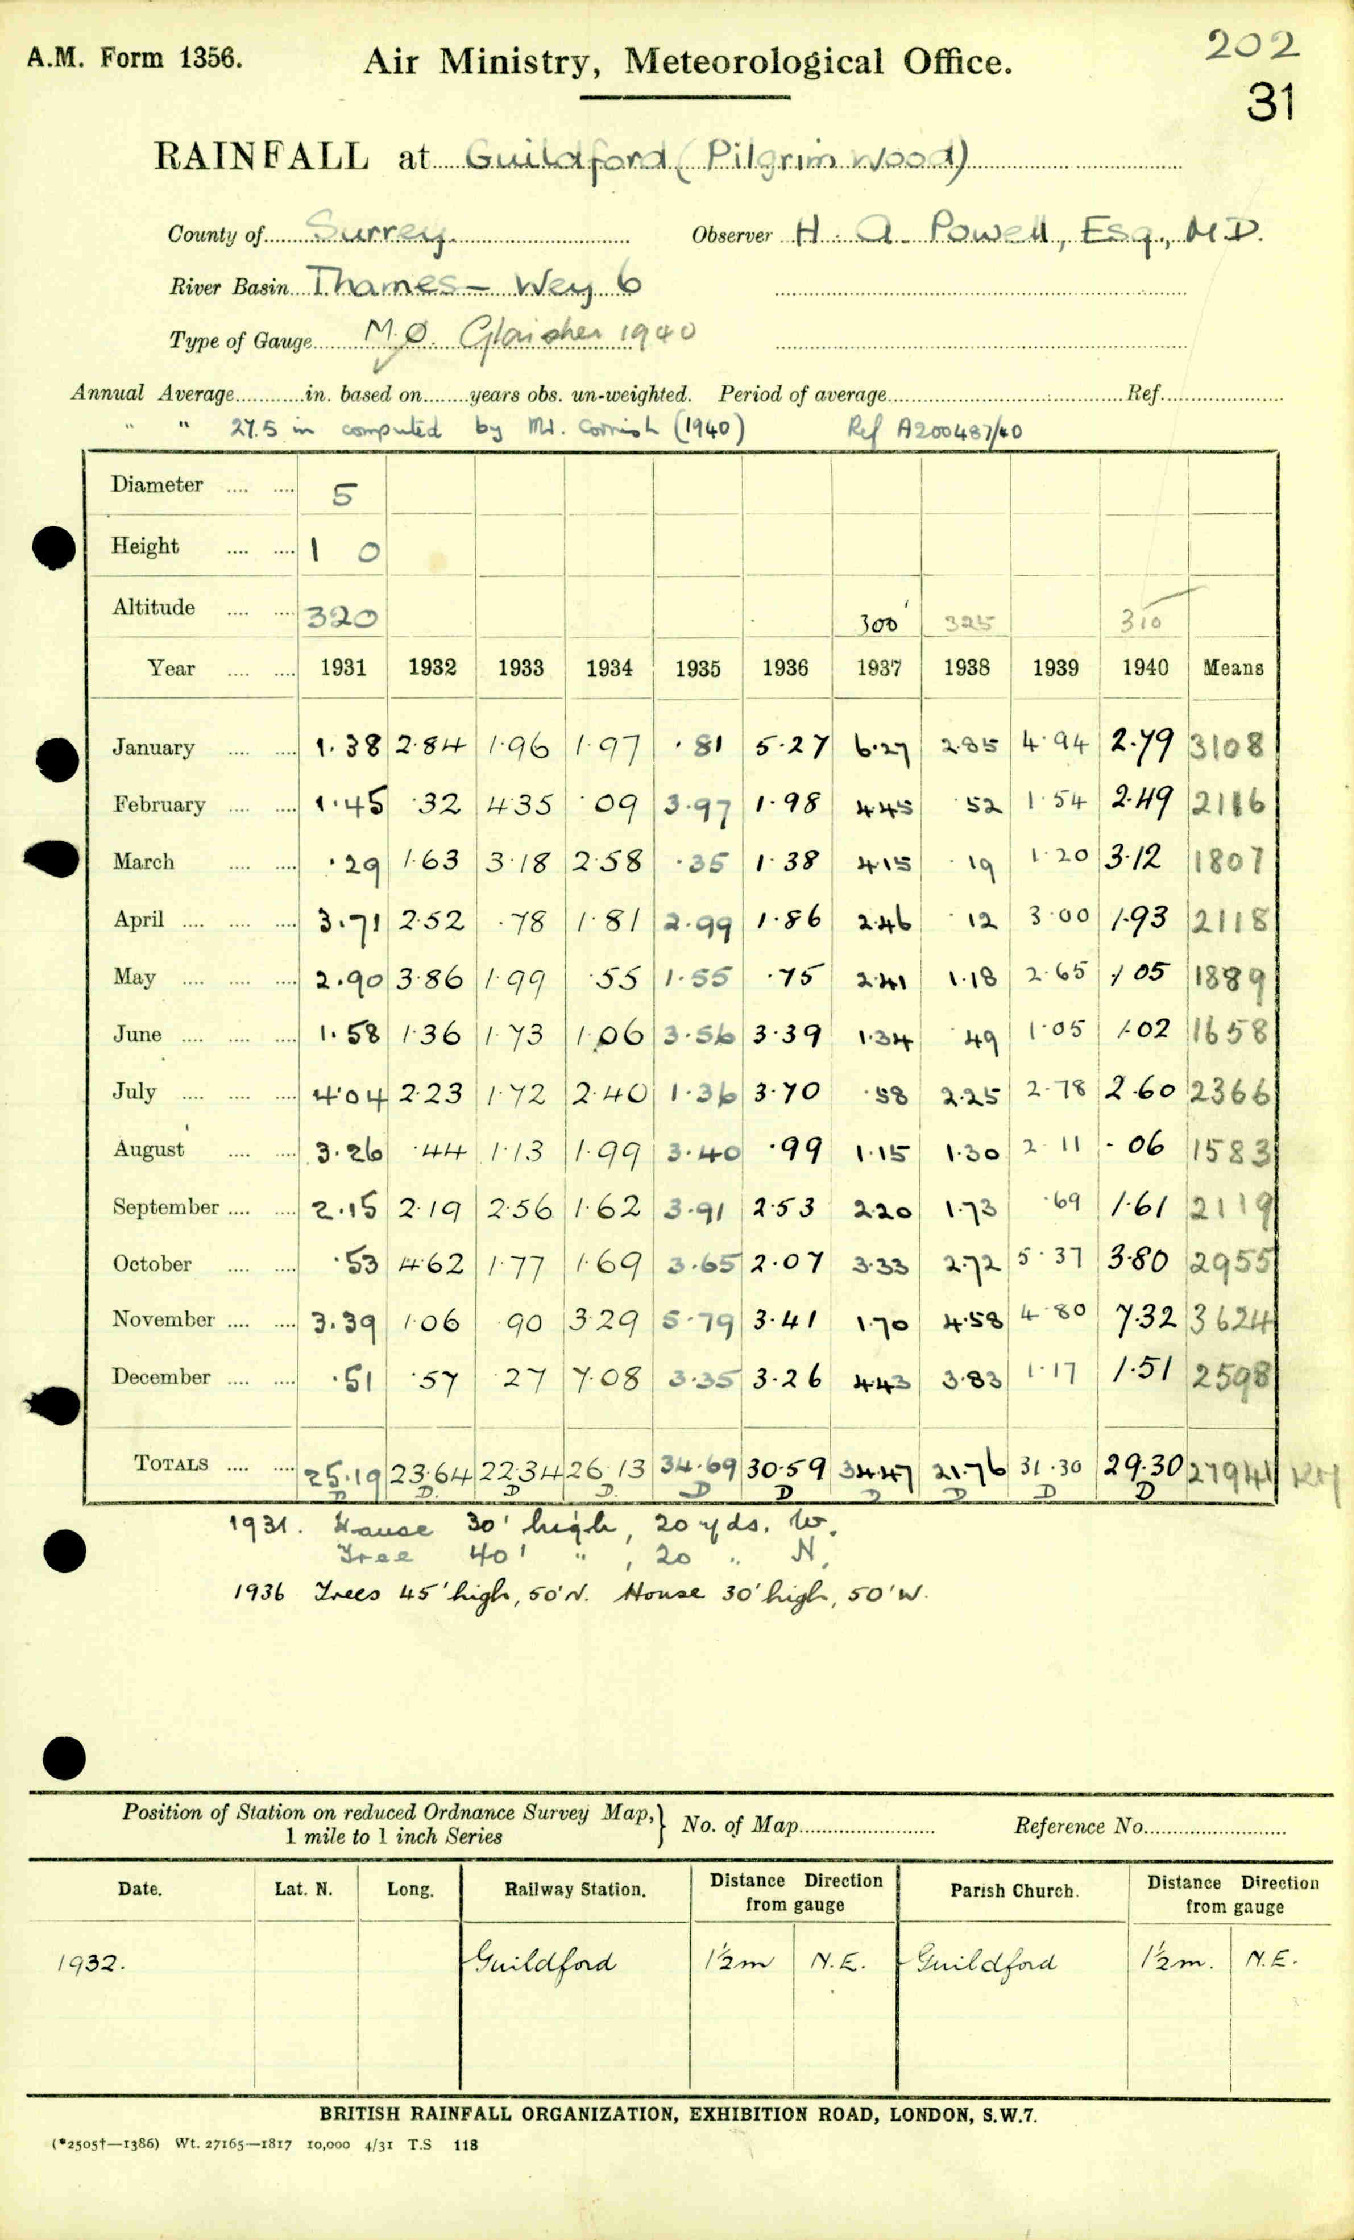 202
A.M. Form 1356. Air Ministry, Meteorological Office.
31
RAINFALL at Guildford (Pilgrim Wood)
County of Surrey. Observer H. A. Powell, Esq., M.D.
River Basin Thames - Wey 6
Type of Gauge M.O. Glaisher 1940
Annual Average in. based on years obs. un-weighted. Period of average Ref.
" " 27.5 in computed by Mr. Cornish (1940) Ref A200487/40
Diameter 5
Height 1 0
Altitude 320 300' 325 310
Year 1931 1932 1933 1934 1935 1936 1937 1938 1939 1940 Means
January 1.38 2.84 1.96 1.97 .81 5.27 6.27 2.85 4.94 2.79 3108
February 1.45 .32 4.35 .09 3.97 1.98 4.45 .52 1.54 2.49 2116
March .29 1.63 3.18 2.58 .35 1.38 4.15 .19 1.20 3.12 1807
April 3.71 2.52 .78 1.81 2.99 1.86 2.46 .12 3.00 1.93 2118
May 2.90 3.86 1.99 .55 1.55 .75 2.41 1.18 2.65 1.05 1889
June 1.58 1.36 1.73 1.06 3.56 3.39 1.34 .49 1.05 1.02 1658
July 4.04 2.23 1.72 2.40 1.36 3.70 .58 2.25 2.78 2.60 2366
August 3.26 .44 1.13 1.99 3.40 .99 1.15 1.30 2.11 .06 1583
September 2.15 2.19 2.56 1.62 3.91 2.53 2.20 1.73 .69 1.61 2119
October .53 4.62 1.77 1.69 3.65 2.07 3.33 2.72 5.37 3.80 2955
November 3.39 1.06 .90 3.29 5.79 3.41 1.70 4.58 4.80 7.32 3624
December .51 .57 .27 7.08 3.35 3.26 4.43 3.83 1.17 1.51 2598
TOTALS 25.19 23.64 22.34 26.13 34.69 30.59 34.47 21.76 31.30 29.30 27941
D D D D D D D D D D
1931. House 30' high, 20 yds. W.
Tree 40' " , 20 " N.
1936 Trees 45' high, 50' N. House 30' high, 50' W.
Position of Station on reduced Ordnance Survey Map, } No. of Map Reference No.
1 mile to 1 inch Series
Date. Lat. N. Long. Railway Station. Distance Direction from gauge Parish Church. Distance Direction from gauge
1932. Guildford 1½m N.E. Guildford 1½m. N.E.
BRITISH RAINFALL ORGANIZATION, EXHIBITION ROAD, LONDON, S.W.7.
(*2505†—1386) Wt. 27165—1817 10,000 4/31 T.S 118